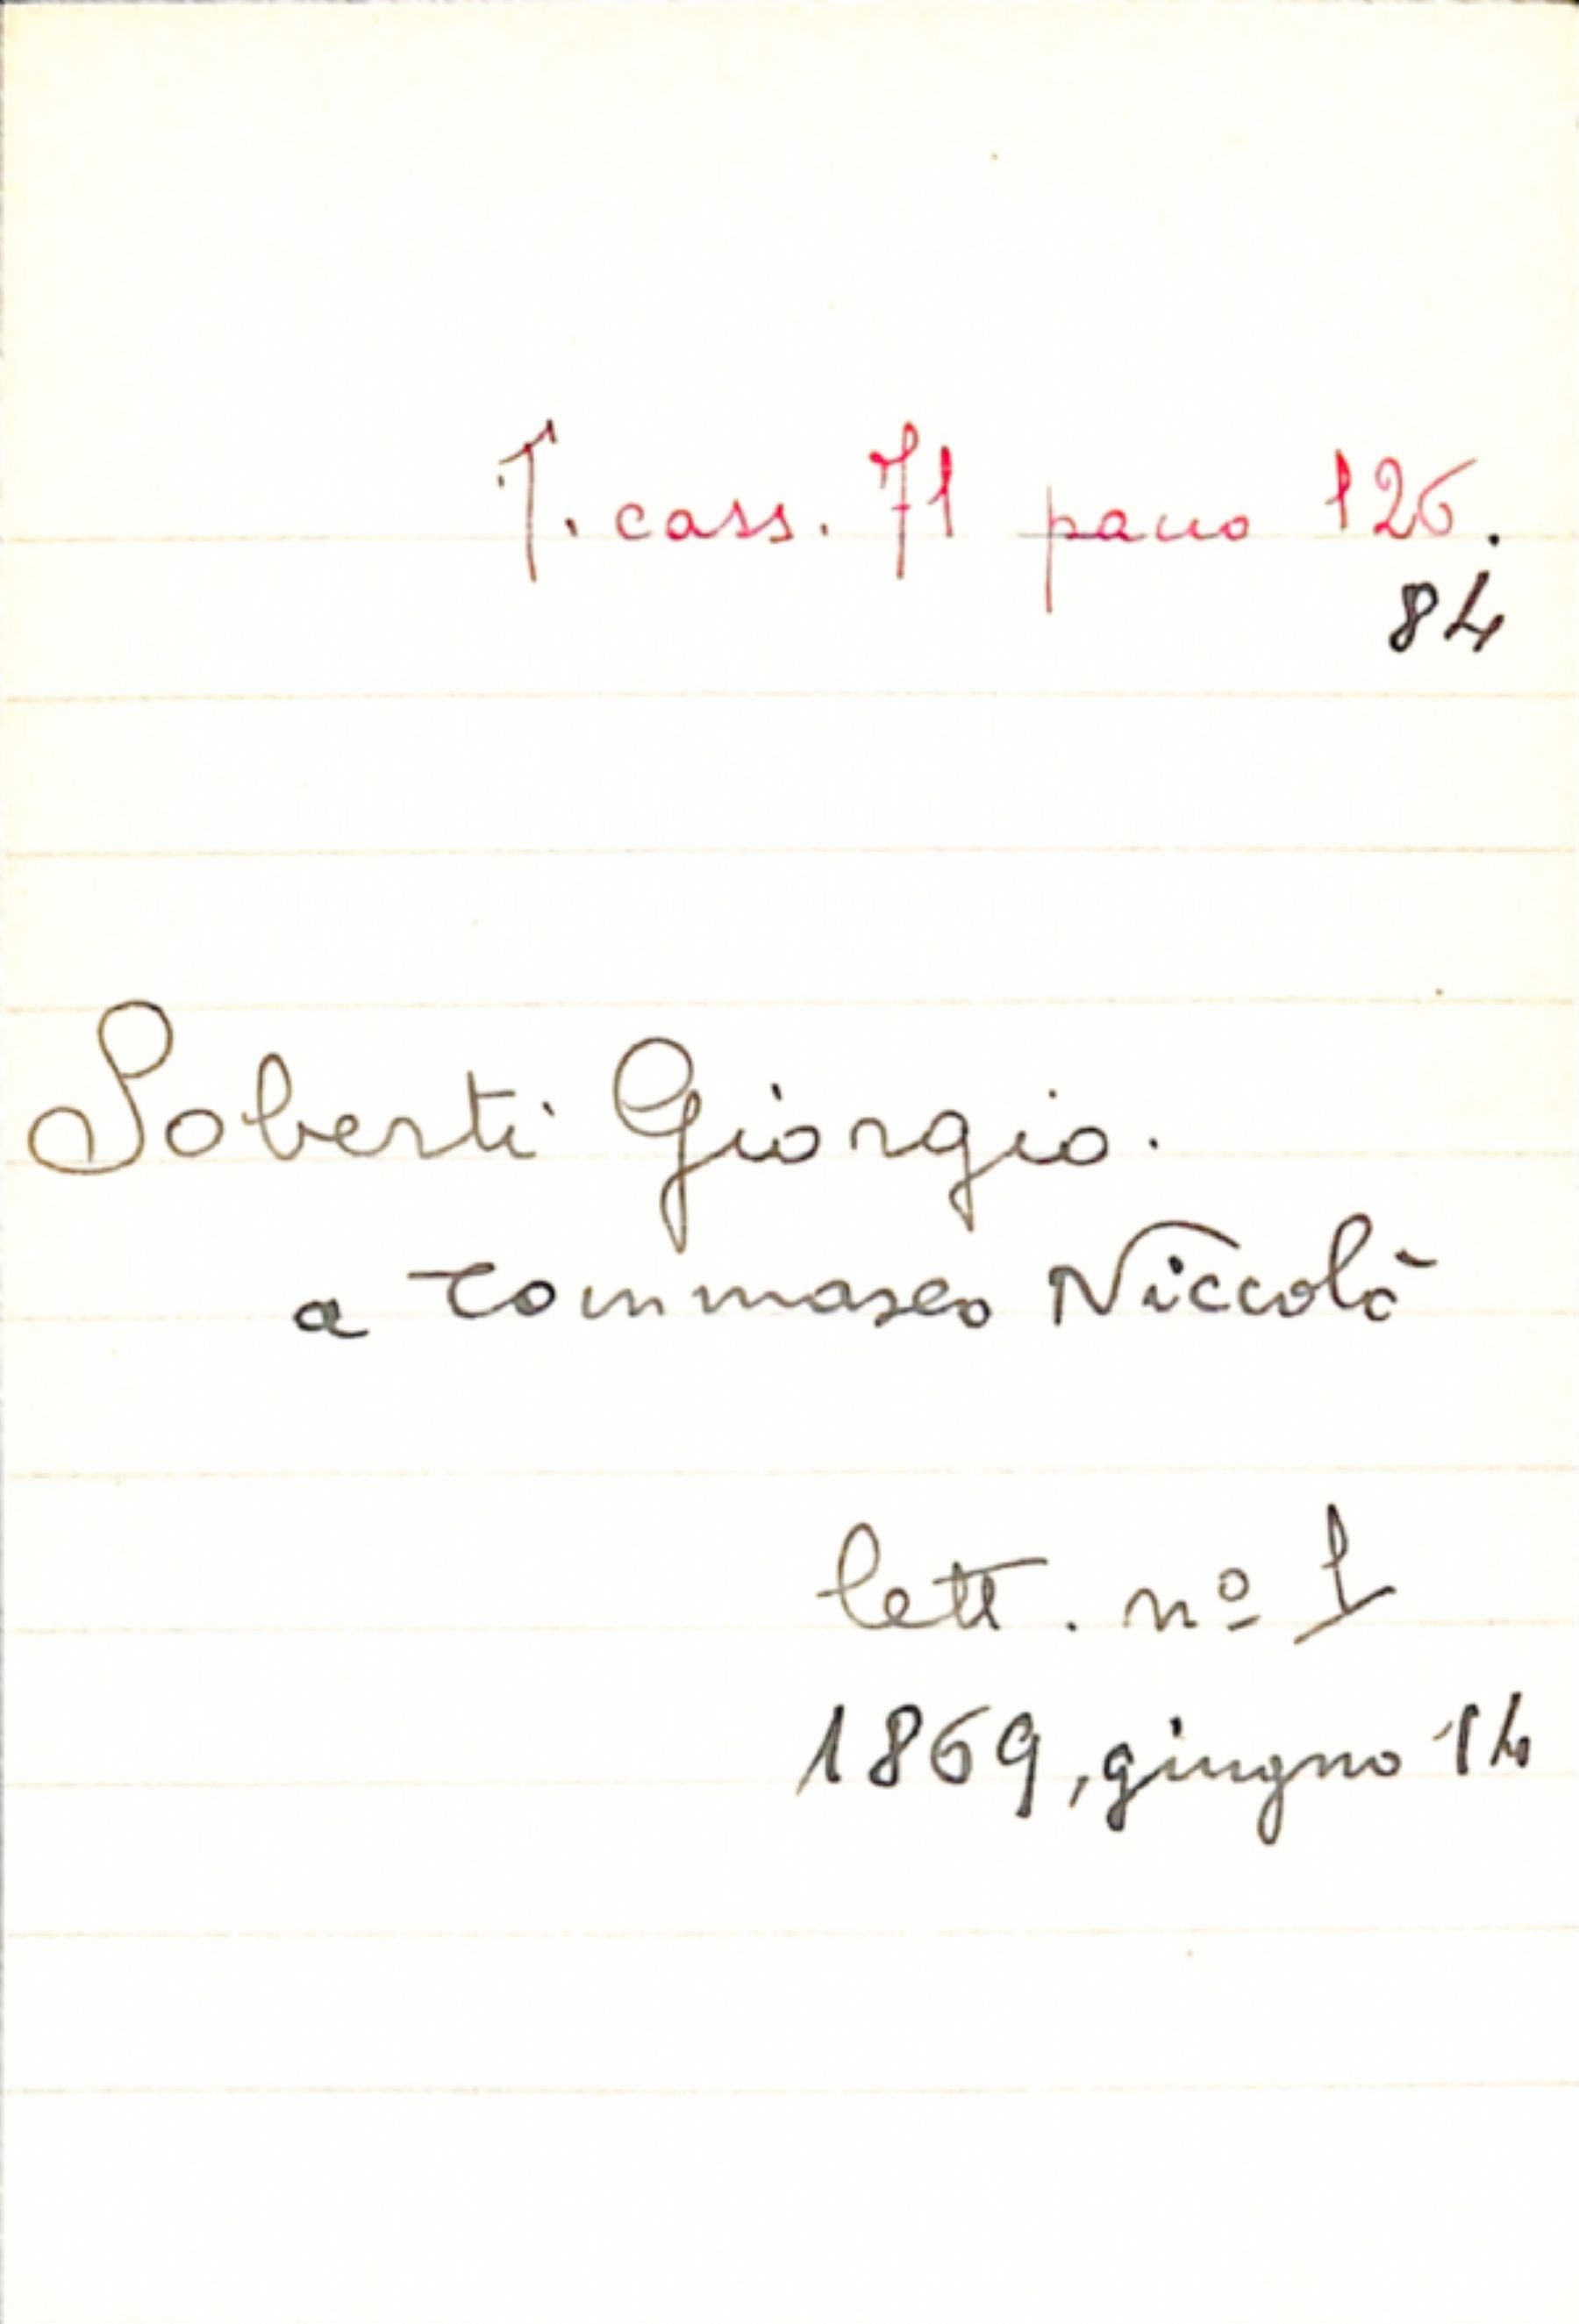 T. cass. 71 pacco 126.
84
Soberti Giorgio.
a Tommaseo Niccolò
lett. nº 1
1869, giugno 14